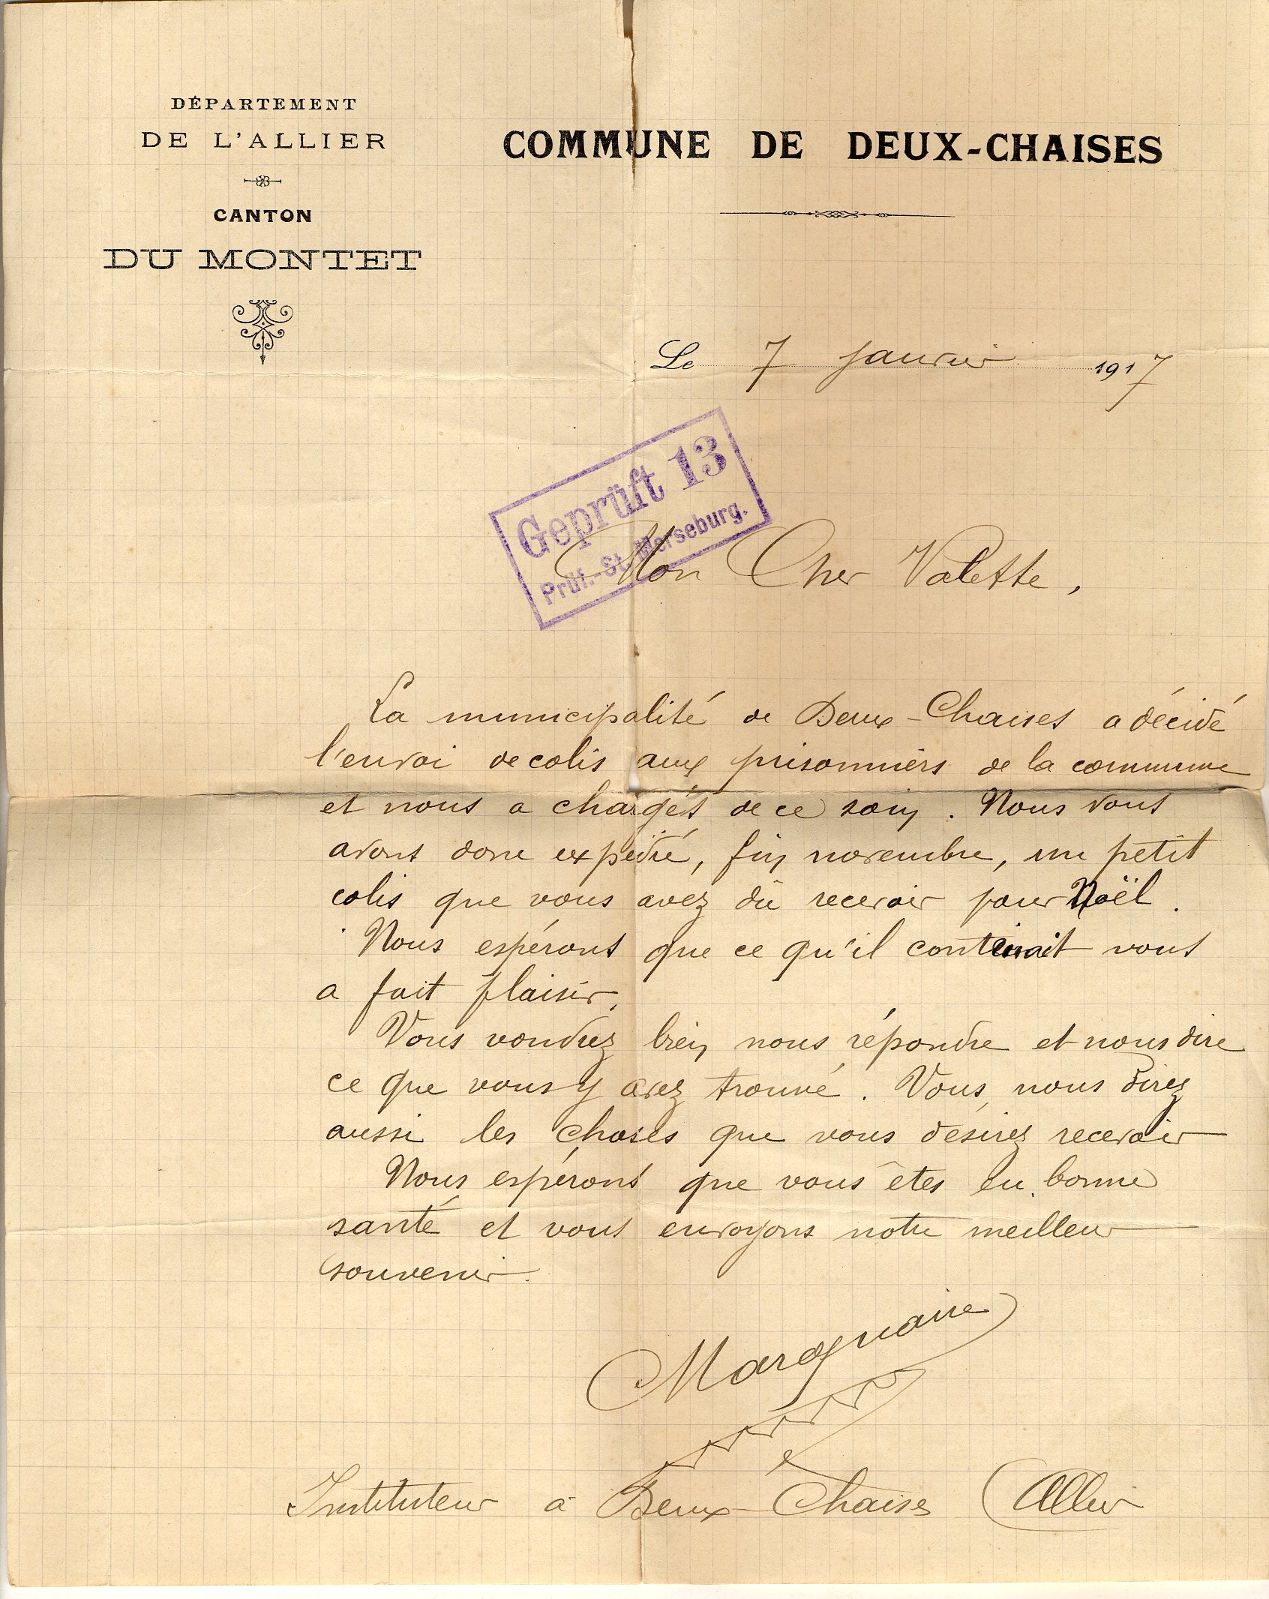 DÉPARTEMENT
DE L'ALLIER
CANTON
DU MONTET
COMMUNE DE DEUX-CHAISES
Le 7 janvier 1917
Geprüft 13
Prüf.-St. Merseburg.
Mon Cher Valette,
La municipalité de Deux-Chaises a décidé
l'envoi de colis aux prisonniers de la commune
et nous a chargés de ce soin. Nous vous
avons donc expédié, fin novembre, un petit
colis que vous avez dû recevoir pour Noël.
Nous espérons que ce qu'il contenait vous
a fait plaisir.
Vous voudrez bien nous répondre et nous dire
ce que vous y avez trouvé. Vous nous direz
aussi les choses que vous désirez recevoir
Nous espérons que vous êtes en bonne
santé et vous envoyons notre meilleur
souvenir.
Instituteur à Deux-Chaises (Allier